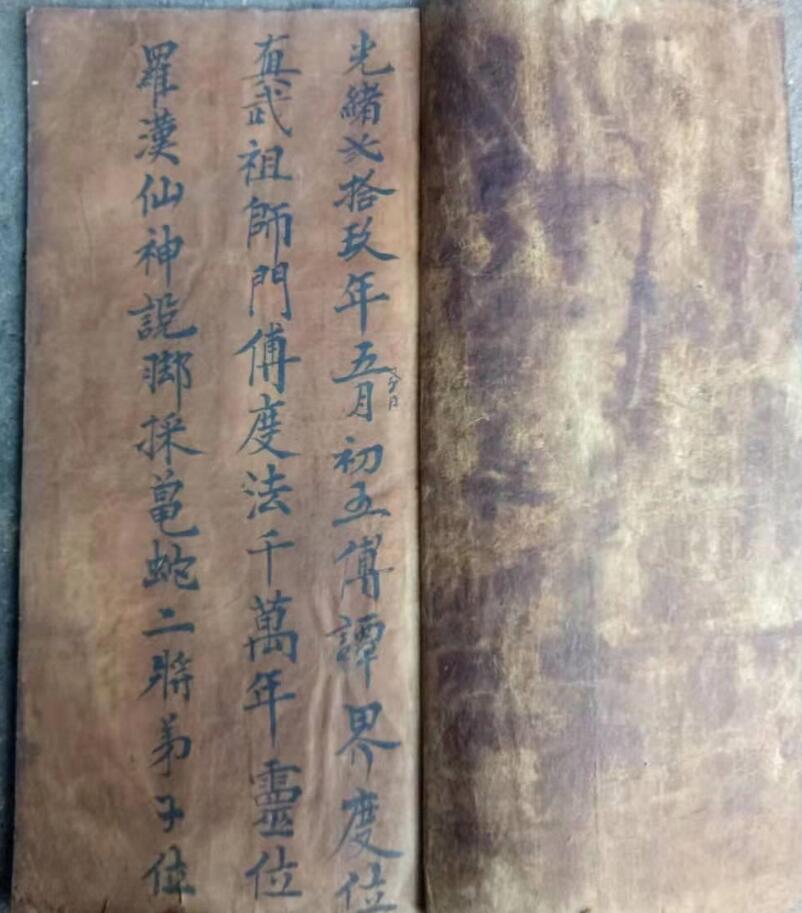 光緒弍拾玖年五月初五傅譚界度位
真武祖師門傅度法千萬年靈位
羅漢仙神說脚採龜蛇二將弟子位